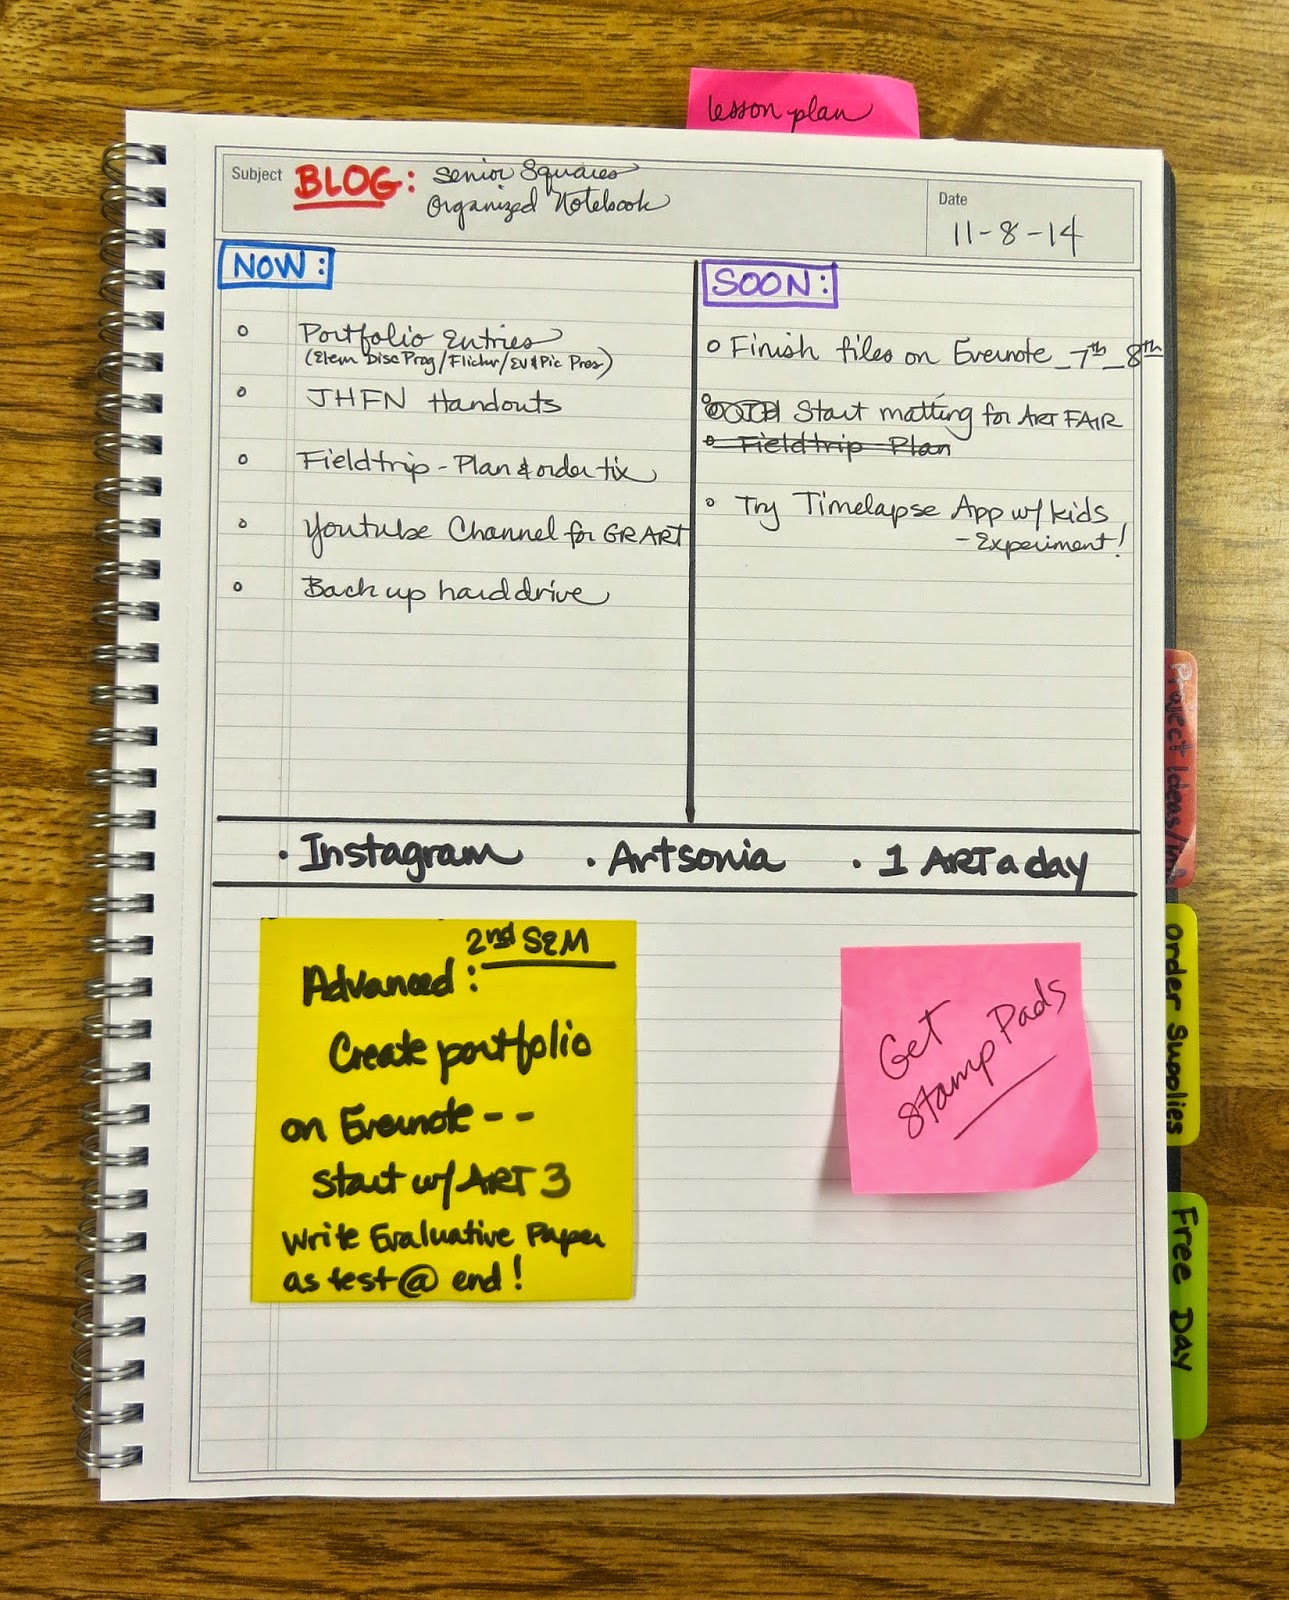 lesson plan
Subject BLOG: Senior Squares
Organized Notebook
Date
11-8-14
NOW:
Portfolio Entries
(Elem Disc Prog/Flickr/EV&Pic Pres)
JHFN Handouts
Fieldtrip - Plan & order tix
Youtube Channel for GRART
Back up harddrive
SOON:
Finish files on Evernote _7th_8th
Start matting for ART FAIR
Fieldtrip Plan
Try Timelapse App w/ kids
- Experiment!
• Instagram • Artsonia • 1 ART a day
2nd SEM
Advanced:
Create portfolio
on Evernote - -
start w/ ART 3
Write Evaluative Paper
as test @ end!
Get
Stamp Pads
Project Ideas/
Order Supplies
Free Day